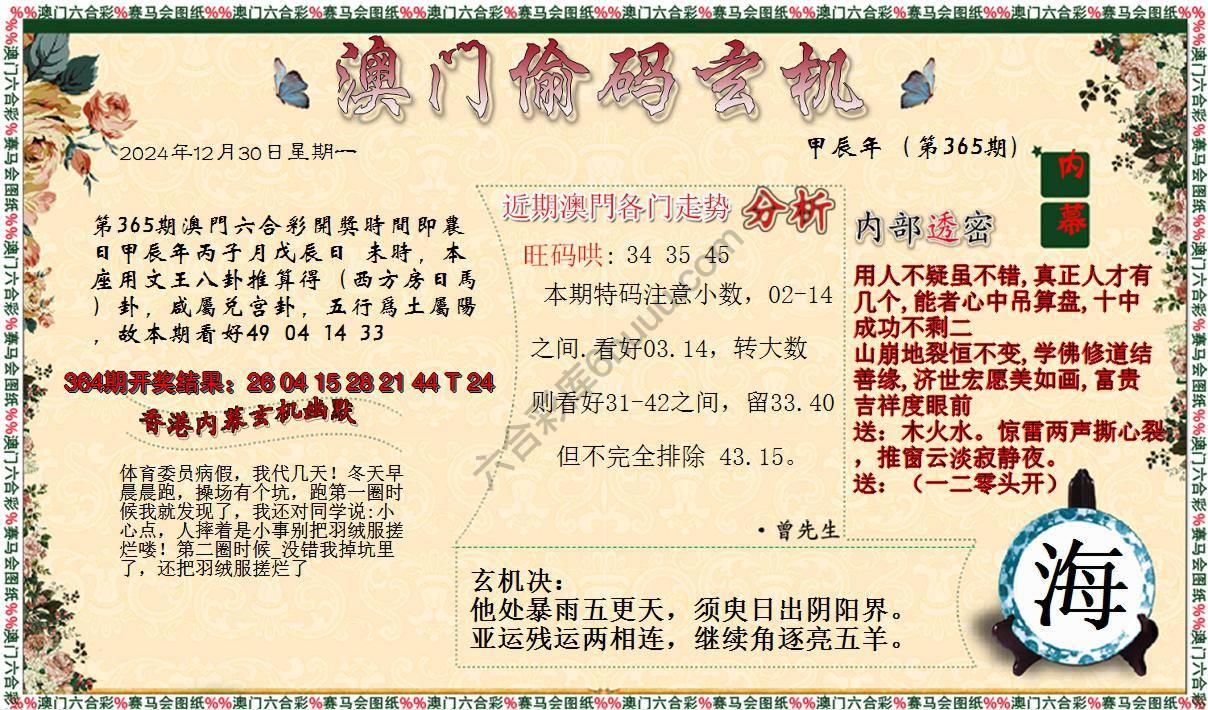 %%澳门六合彩%赛马会图纸%%澳门六合彩%赛马会图纸%%澳门六合彩%赛马会图纸%%澳门六合彩%赛马会图纸%%澳门六合彩%赛马会图纸%%澳门六合彩%赛马会图纸%%
澳门偷码玄机
2024年12月30日星期一
甲辰年（第365期）
内
幕
第365期澳門六合彩開獎時間即農
日甲辰年丙子月戊辰日 未時，本
座用文王八卦推算得（西方房日馬
）卦，咸屬兌宫卦，五行爲土屬陽
，故本期看好49 04 14 33
364期开奖结果：26 04 15 28 21 44 T 24
香港内幕玄机幽默
体育委员病假，我代几天！冬天早
晨晨跑，操场有个坑，跑第一圈时
候我就发现了，我还对同学说:小
心点，人摔着是小事别把羽绒服搓
烂喽！第二圈时候_没错我掉坑里
了，还把羽绒服搓烂了
近期澳門各门走势 分析
旺码哄: 34 35 45
本期特码注意小数，02-14
之间.看好03.14，转大数
则看好31-42之间，留33.40
但不完全排除 43.15。
·曾先生
内部透密
用人不疑虽不错,真正人才有
几个,能者心中吊算盘,十中
成功不剩二
山崩地裂恒不变,学佛修道结
善缘,济世宏愿美如画,富贵
吉祥度眼前
送：木火水。惊雷两声撕心裂
，推窗云淡寂静夜。
送：（一二零头开）
玄机决：
他处暴雨五更天，须臾日出阴阳界。
亚运残运两相连，继续角逐亮五羊。
海
%%澳门六合彩%赛马会图纸%%澳门六合彩%赛马会图纸%%澳门六合彩%赛马会图纸%%澳门六合彩%赛马会图纸%%澳门六合彩%赛马会图纸%%澳门六合彩%赛马会图纸%%